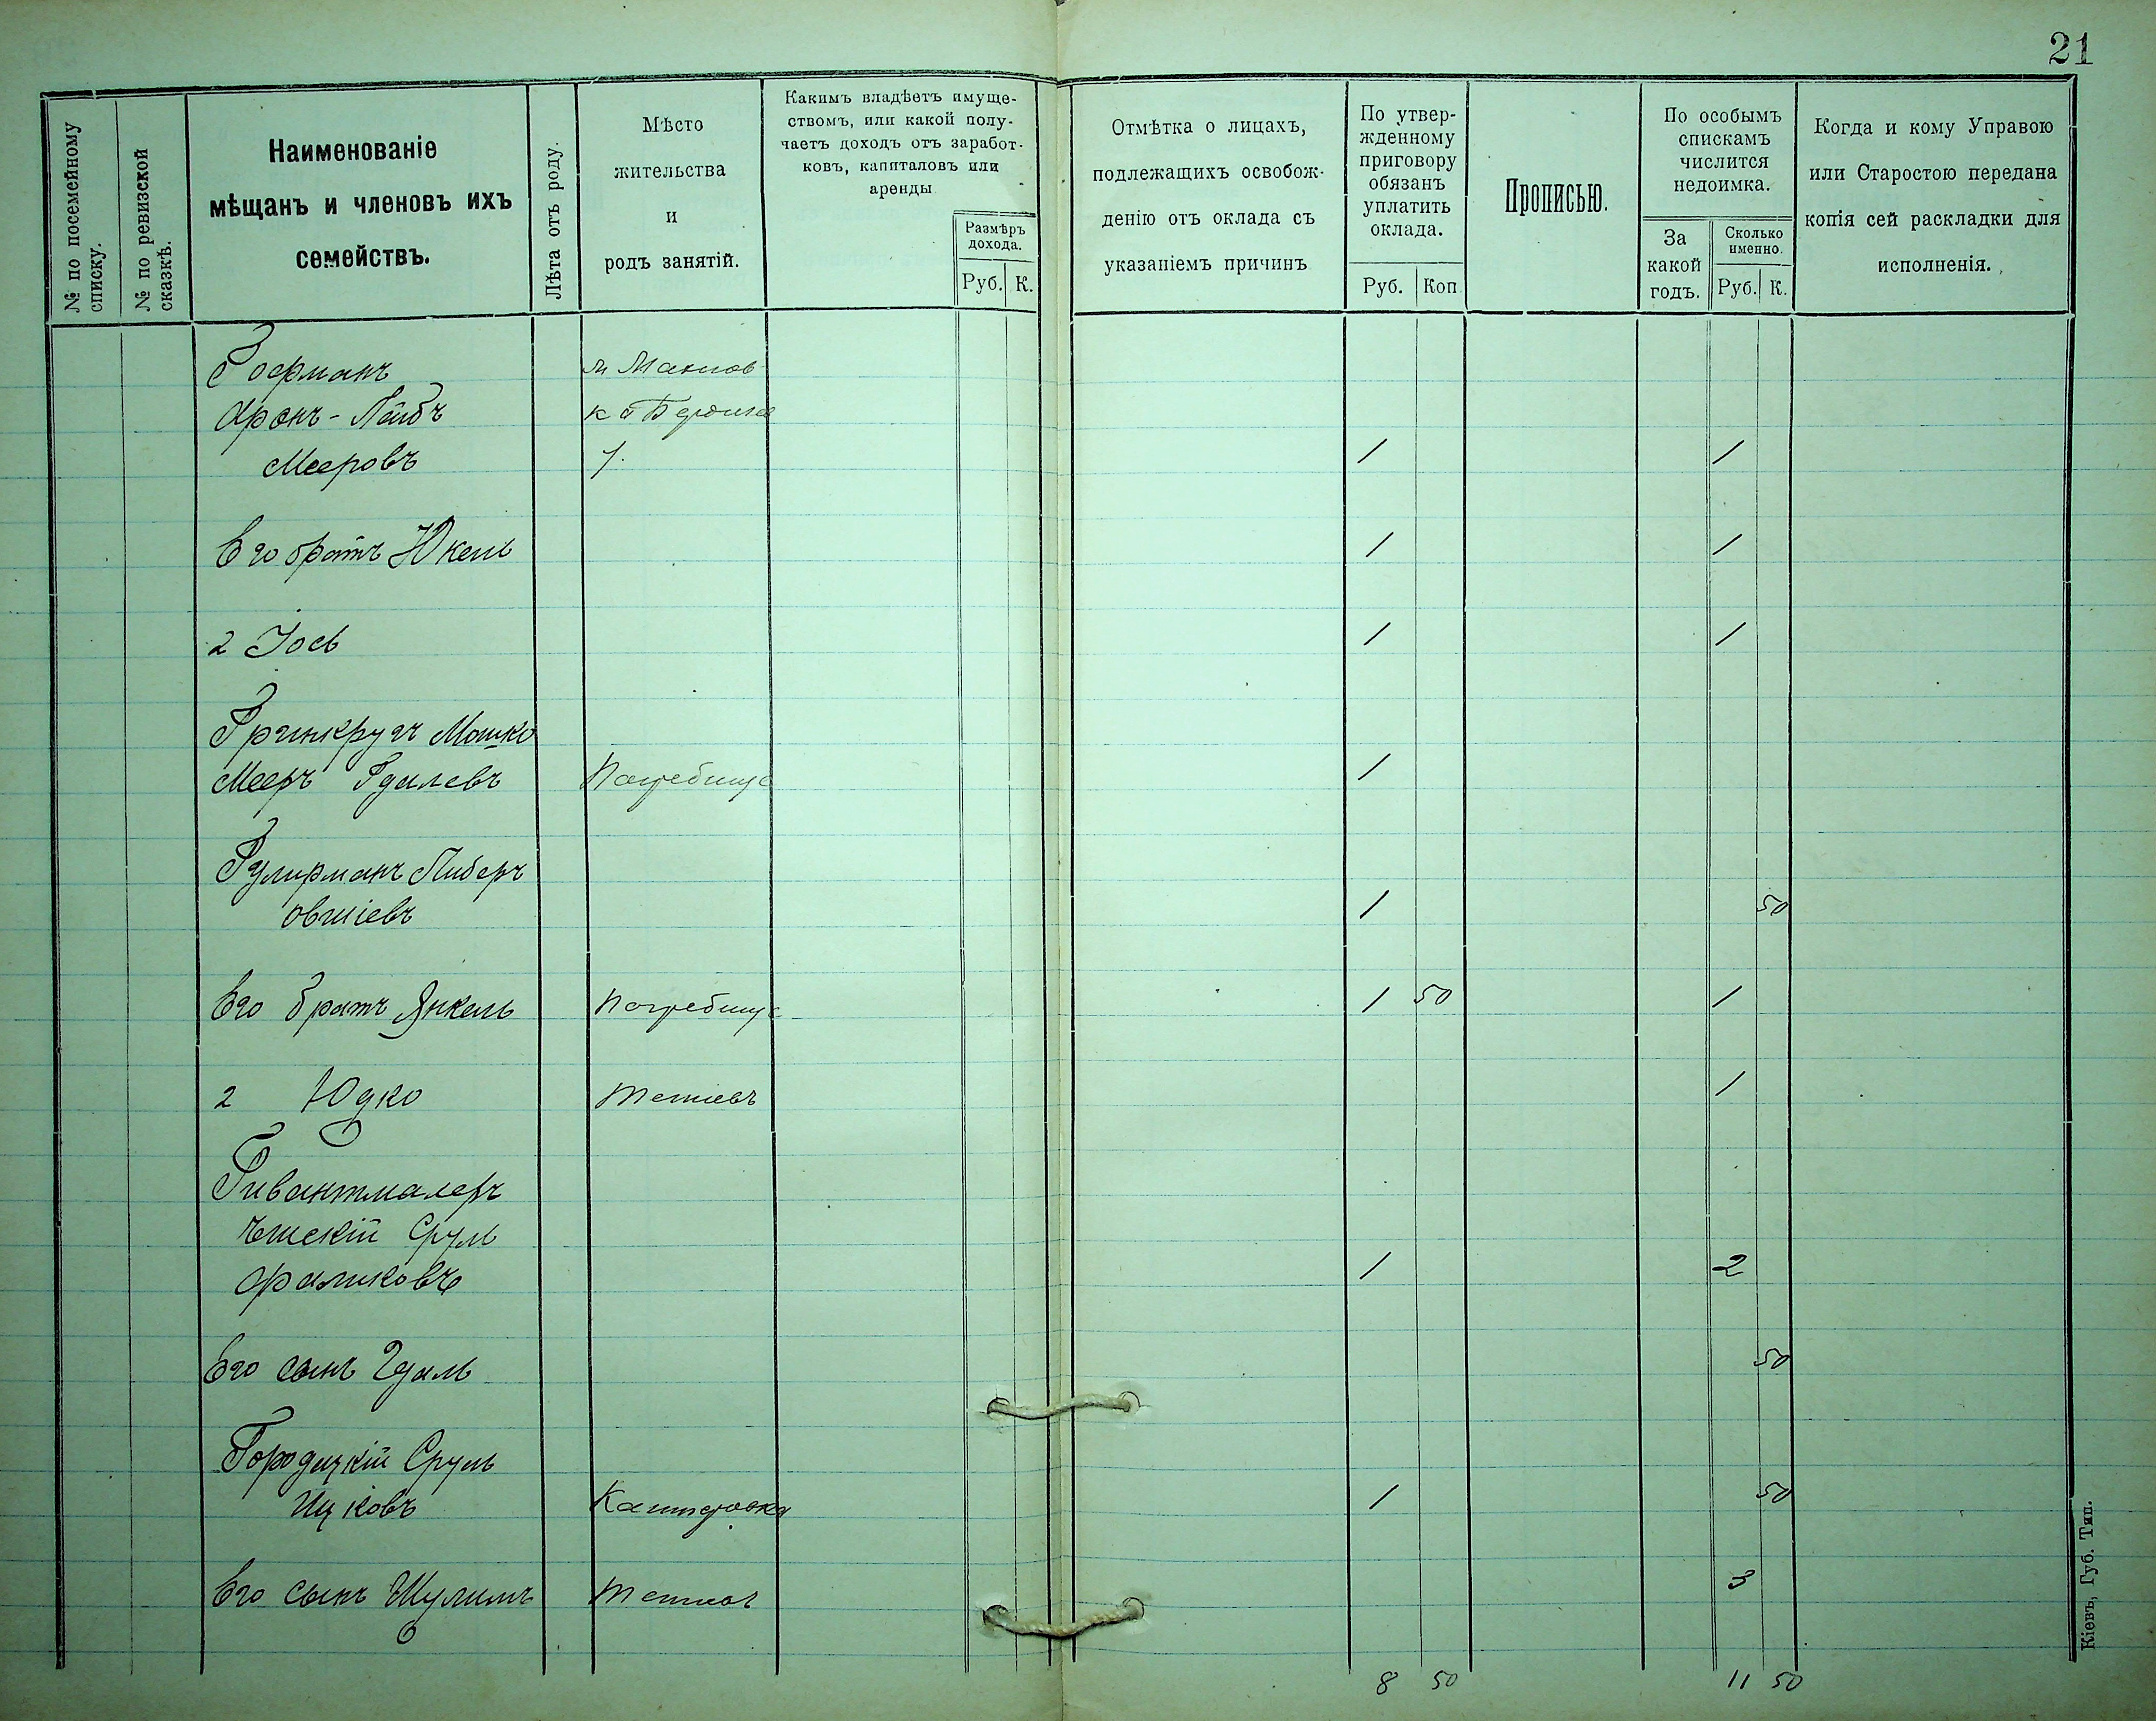 21
№ по посемейному списку.
№ по ревизской сказкѣ.
Наименованіе
мѣщанъ и членовъ ихъ
семействъ.
Лѣта отъ роду.
Мѣсто
жительства
и
родъ занятій.
Какимъ владѣетъ имуще-
ствомъ, или какой полу-
чаетъ доходъ отъ заработ-
ковъ, капиталовъ или
аренды
Размѣръ
дохода.
Руб. К.
Отмѣтка о лицахъ,
подлежащихъ освобож-
денію отъ оклада съ
указаніемъ причинъ
По утвер-
жденному
приговору
обязанъ
уплатить
оклада.
Руб. Коп
Прописью.
По особымъ
спискамъ
числится
недоимка.
За
какой
годъ.
Сколько
именно.
Руб. К.
Когда и кому Управою
или Старостою передана
копія сей раскладки для
исполненія.
Гофманъ м Махнов
Аронъ-Лейбъ ка Бердичев
Мееровъ у. 1 1
Его братъ Юкель 1 1
2 Іось 1 1
Гринкругъ Мошко
Мееръ Гдалевъ Погребище 1
Гулирманъ Либеръ
Овшіевъ 1 50
Его братъ Янкель Погребище 1 50 1
2 Юдко Тетіевъ 1
Гивантмалеръ
Срул
Фаликовъ 1 2
Его сынъ Гдаль 50
Городецкій Сруль
Ицковъ Каштеровка 1 50
Его сынъ Шулимъ Тетіевъ 3
8 50 11 50
Кіевъ, Губ. Тип.